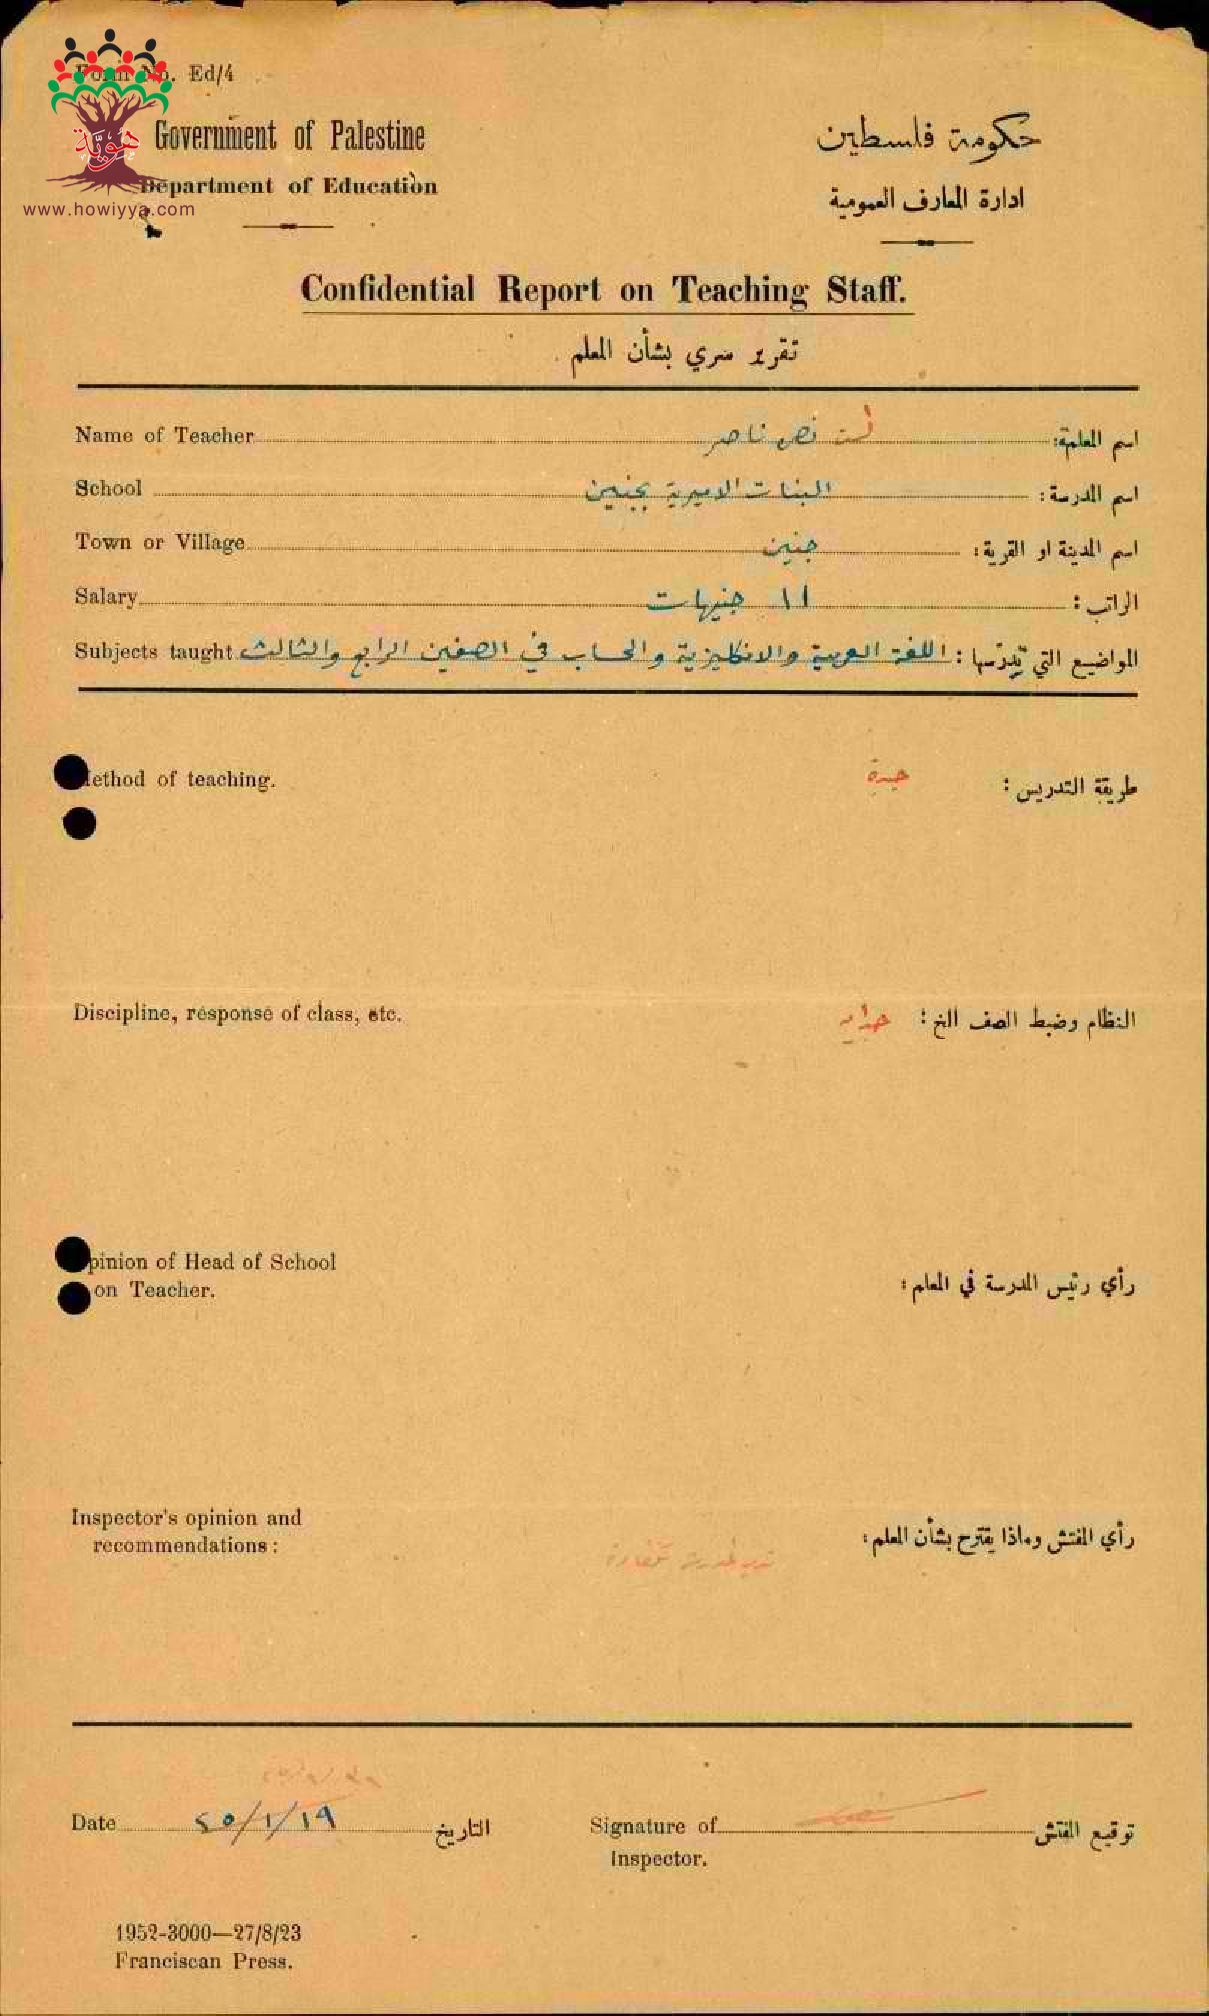 Form No. Ed/4
هويّة
www.howiyya.com
Government of Palestine
حكومة فلسطين
Department of Education
ادارة المعارف العمومية
Confidential Report on Teaching Staff.
تقرير سري بشأن المعلم
Name of Teacher الست نص ناصر اسم المعلمة:
School البنات الاميرية بجنين اسم المدرسة:
Town or Village جنين اسم المدينة او القرية:
Salary ١١ جنيهات الراتب:
Subjects taught اللغة العربية والانكليزية والحساب في الصفين الرابع والثالث المواضيع التي تدرسها:
Method of teaching. جيدة طريقة التدريس:
Discipline, response of class, etc. النظام وضبط الصف الخ:
Opinion of Head of School
on Teacher.
رأي رئيس المدرسة في المعلم:
Inspector's opinion and
recommendations:
رأي المفتش وماذا يقترح بشأن المعلم:
Date ٢٥/١/١٩ التاريخ
Signature of
Inspector.
توقيع المفتش
1952-3000—27/8/23
Franciscan Press.